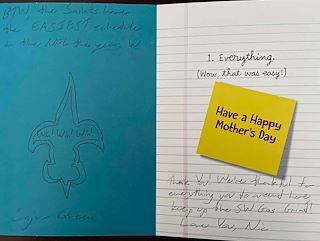 BTW, the Saints have
the EASIEST schedule
in the NFL this year. W
1. Everything.
(Wow, that was easy!)
Have a Happy
Mother's Day
Thank You! We're thankful for
everything you do
keep up the SW Gas Grind!
Love You,